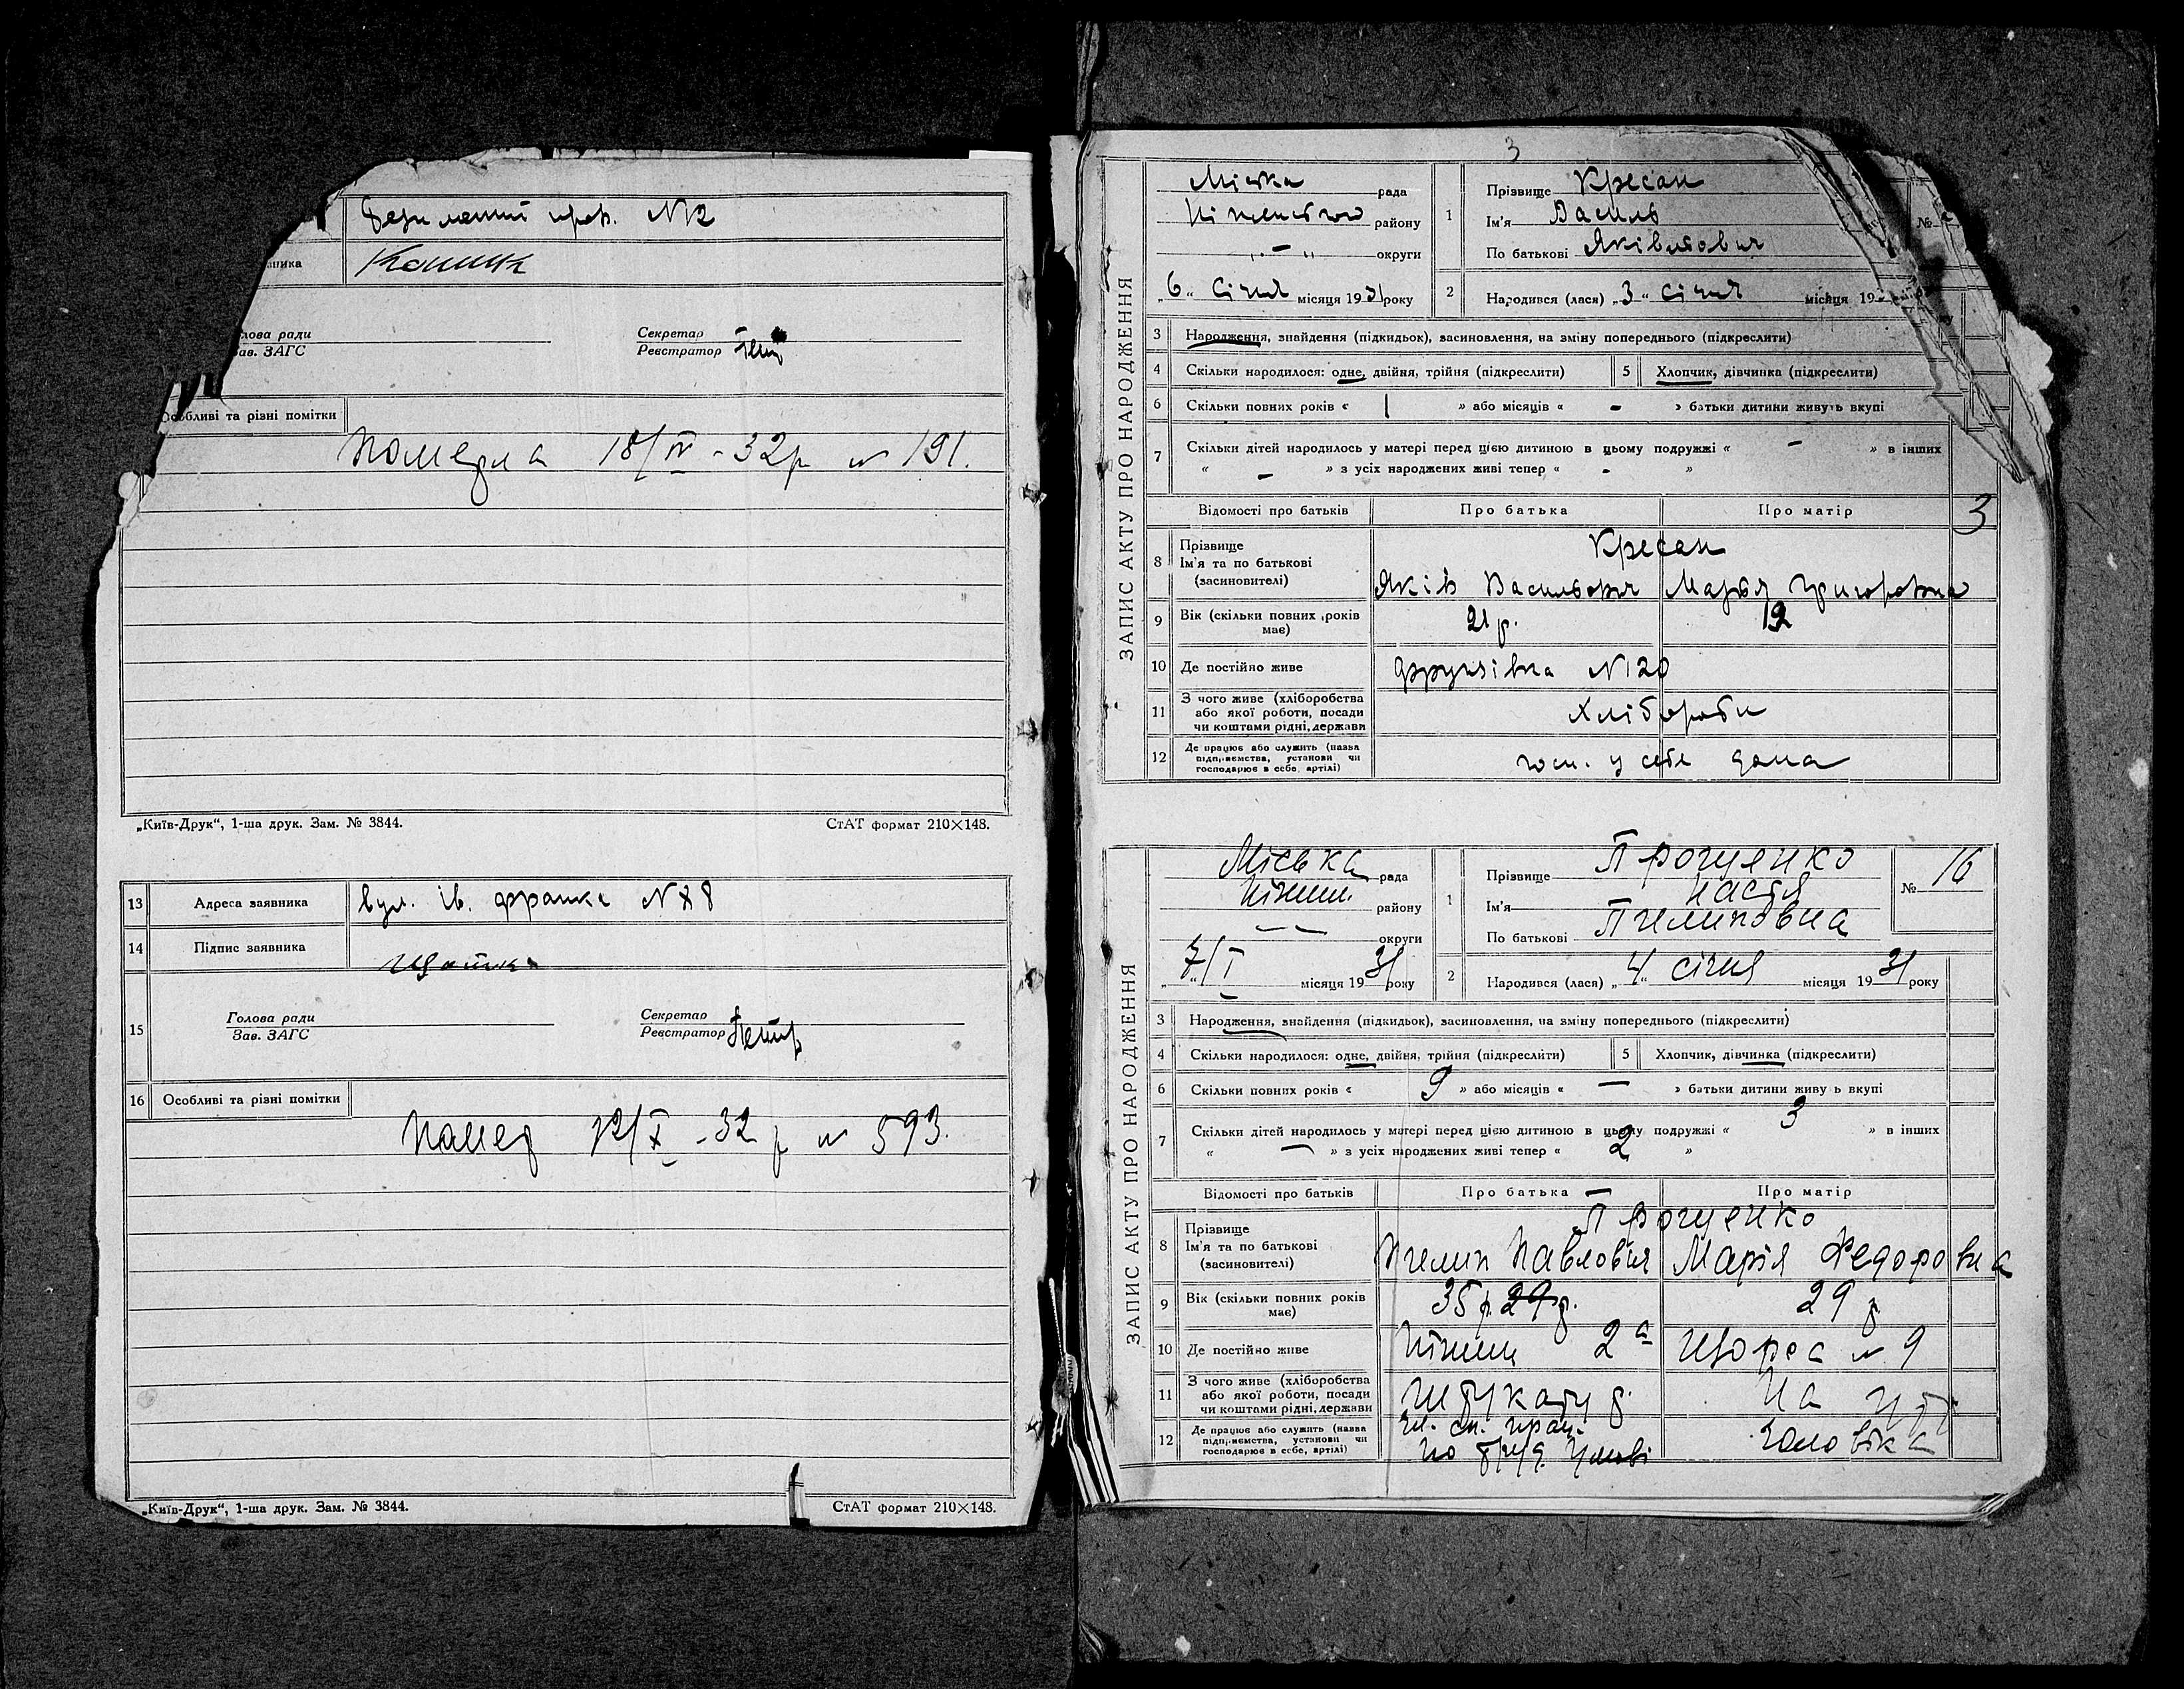 пров. № 2
Коник
лова ради
Зав. ЗАГС
Секретар
Реєстратор
Особливі та різні помітки
Померла 18/IV - 32 р № 191.
„Київ-Друк“, 1-ша друк. Зам. № 3844.
СтАТ формат 210×148.
13 Адреса заявника
вул. Ів. Франка №
14 Підпис заявника
15
Голова ради
Зав. ЗАГС
Секретар
Реєстратор
16 Особливі та різні помітки
Помер 12/X - 32 р № 593.
„Київ-Друк“, 1-ша друк. Зам. № 3844.
СтАТ формат 210×148.
3
ЗАПИС АКТУ ПРО НАРОДЖЕННЯ
Міська рада
Ніженського району
„ - „ округи
„6“ Січня місяця 1931 року
1 Прізвище Кресан
Ім'я Василь
По батькові Яківлевич
№
2 Народився (лася) „3“ січня місяця 19
3 Народження, знайдення (підкидьок), засиновлення, на зміну попереднього (підкреслити)
4 Скільки народилося: одне, двійня, трійня (підкреслити) 5 Хлопчик, дівчинка (підкреслити)
6 Скільки повних років « 1 » або місяців « - » батьки дитини живуть вкупі
7 Скільки дітей народилось у матері перед цією дитиною в цьому подружжі « - » в інших
« - » з усіх народжених живі тепер « - »
Відомості про батьків Про батька Про матір
3
8 Прізвище
Ім'я та по батькові
(засиновителі)
Кресан
Яків Васильович Марія Григоровна
9 Вік (скільки повних років має) 21 р. 19
10 Де постійно живе Фрунзівка № 120
11 З чого живе (хліборобства або якої роботи, посади чи коштами рідні, держави
Хлібороби
12 Де працює або служить (назва підприємства, установи чи господарює в себе, артілі)
госп. у себе дома
ЗАПИС АКТУ ПРО НАРОДЖЕННЯ
Міська рада
Ніжин. району
округи
7/I місяця 1931 року
1 Прізвище Процуенко
Ім'я Настя
По батькові Пилиповна
№ 16
2 Народився (лася) „4“ січня місяця 1931 року
3 Народження, знайдення (підкидьок), засиновлення, на зміну попереднього (підкреслити)
4 Скільки народилося: одне, двійня, трійня (підкреслити) 5 Хлопчик, дівчинка (підкреслити)
6 Скільки повних років « 9 » або місяців « — » батьки дитини живу ь вкупі
7 Скільки дітей народилось у матері перед цією дитиною в цьому подружжі « 3 » в інших
« — » з усіх народжених живі тепер « 2 »
Відомості про батьків Про батька Про матір
8 Прізвище
Ім'я та по батькові
(засиновителі)
Процуенко
Пилип Павлович Марія Федоровна
9 Вік (скільки повних років має) 35 р. 29 р. 29 р
10 Де постійно живе Ніжин 2а Щорса № 9
11 З чого живе (хліборобства або якої роботи, посади чи коштами рідні, держави
Штукатур. На утр
12 Де працює або служить (назва підприємства, установи чи господарює в себе, артілі)
чл. сп. прац.
по труд. Умові чоловіка